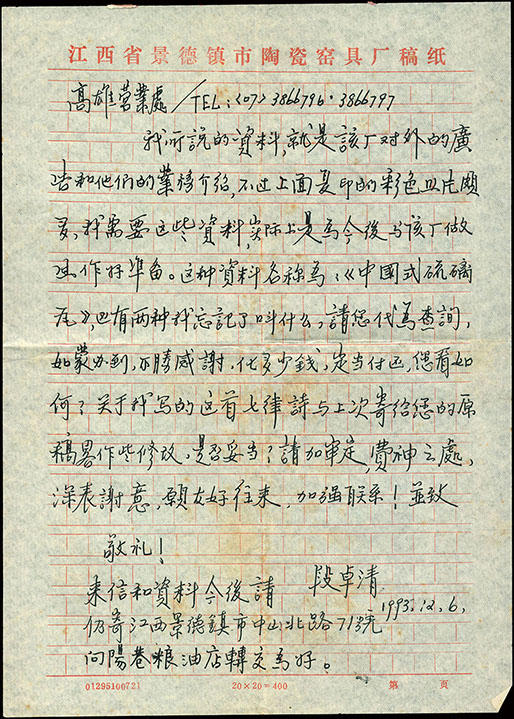 江西省景德镇市陶瓷窑具厂稿纸
高雄营業處／TEL：<07>3866796·3866797
我所説的資料，就是該厂对外的廣
告和他們的業務介绍，不过上面复印的彩色照片頗
多，我需要这些資料，实际上是為今後与该厂做
工作好準备。这种資料名称為：《中國式琉璃
瓦》，也有两种我忘記了叫什么，請您代為查詢，
如蒙办到，不勝感謝，化多少钱，定当付还，您看如
何？关于我写的这首七律詩与上次寄给您的原
稿畧作些修改，是否妥当？請加审定，費神之處，
深表謝意，願友好往来，加强联系！並致
敬礼！
段卓清
1993.12.6,
来信和資料今後請
仍寄江西景德鎮市中山北路71号
向陽巷粮油店轉交為好。
01295100721
20×20=400
第 页